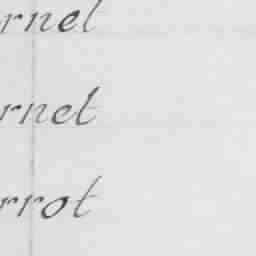 rnel
rnet
rrot